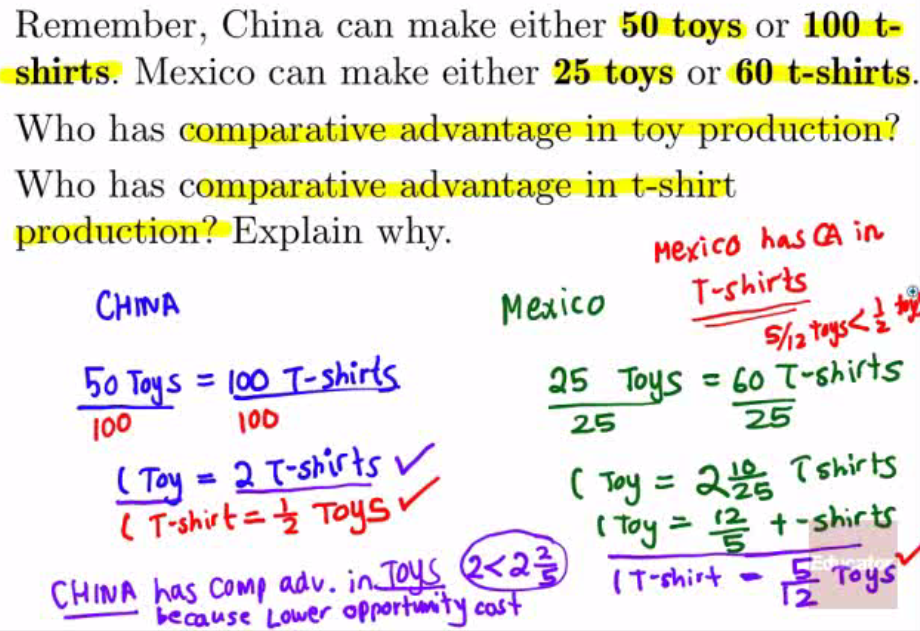 Remember, China can make either 50 toys or 100 t-
shirts. Mexico can make either 25 toys or 60 t-shirts.
Who has comparative advantage in toy production?
Who has comparative advantage in t-shirt
production? Explain why.
Mexico has CA in
T-shirts
5/12 toys < 1/2
CHINA
50 Toys = 100 T-shirts
100 100
1 Toy = 2 T-shirts ✓
1 T-shirt = 1/2 Toys ✓
CHINA has comp adv. in Toys 2 < 2 2/5
because Lower opportunity cost
Mexico
25 Toys = 60 T-shirts
25 25
1 Toy = 2 10/25 T shirts
1 Toy = 12/5 t-shirts
1 T-shirt = 5/12 Toys ✓
Educator